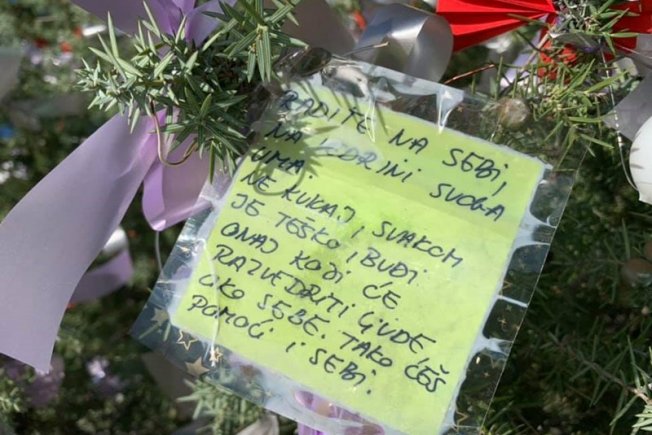 RADITE NA SEBI,
NA VEDRINI SVOGA
UMA
NE KUKAJ SVAKOM
JE TEŠKO I BUDI
ONAJ KOJI ĆE
RAZVEDRITI LJUDE
OKO SEBE. TAKO ĆEŠ
POMOĆI I SEBI.